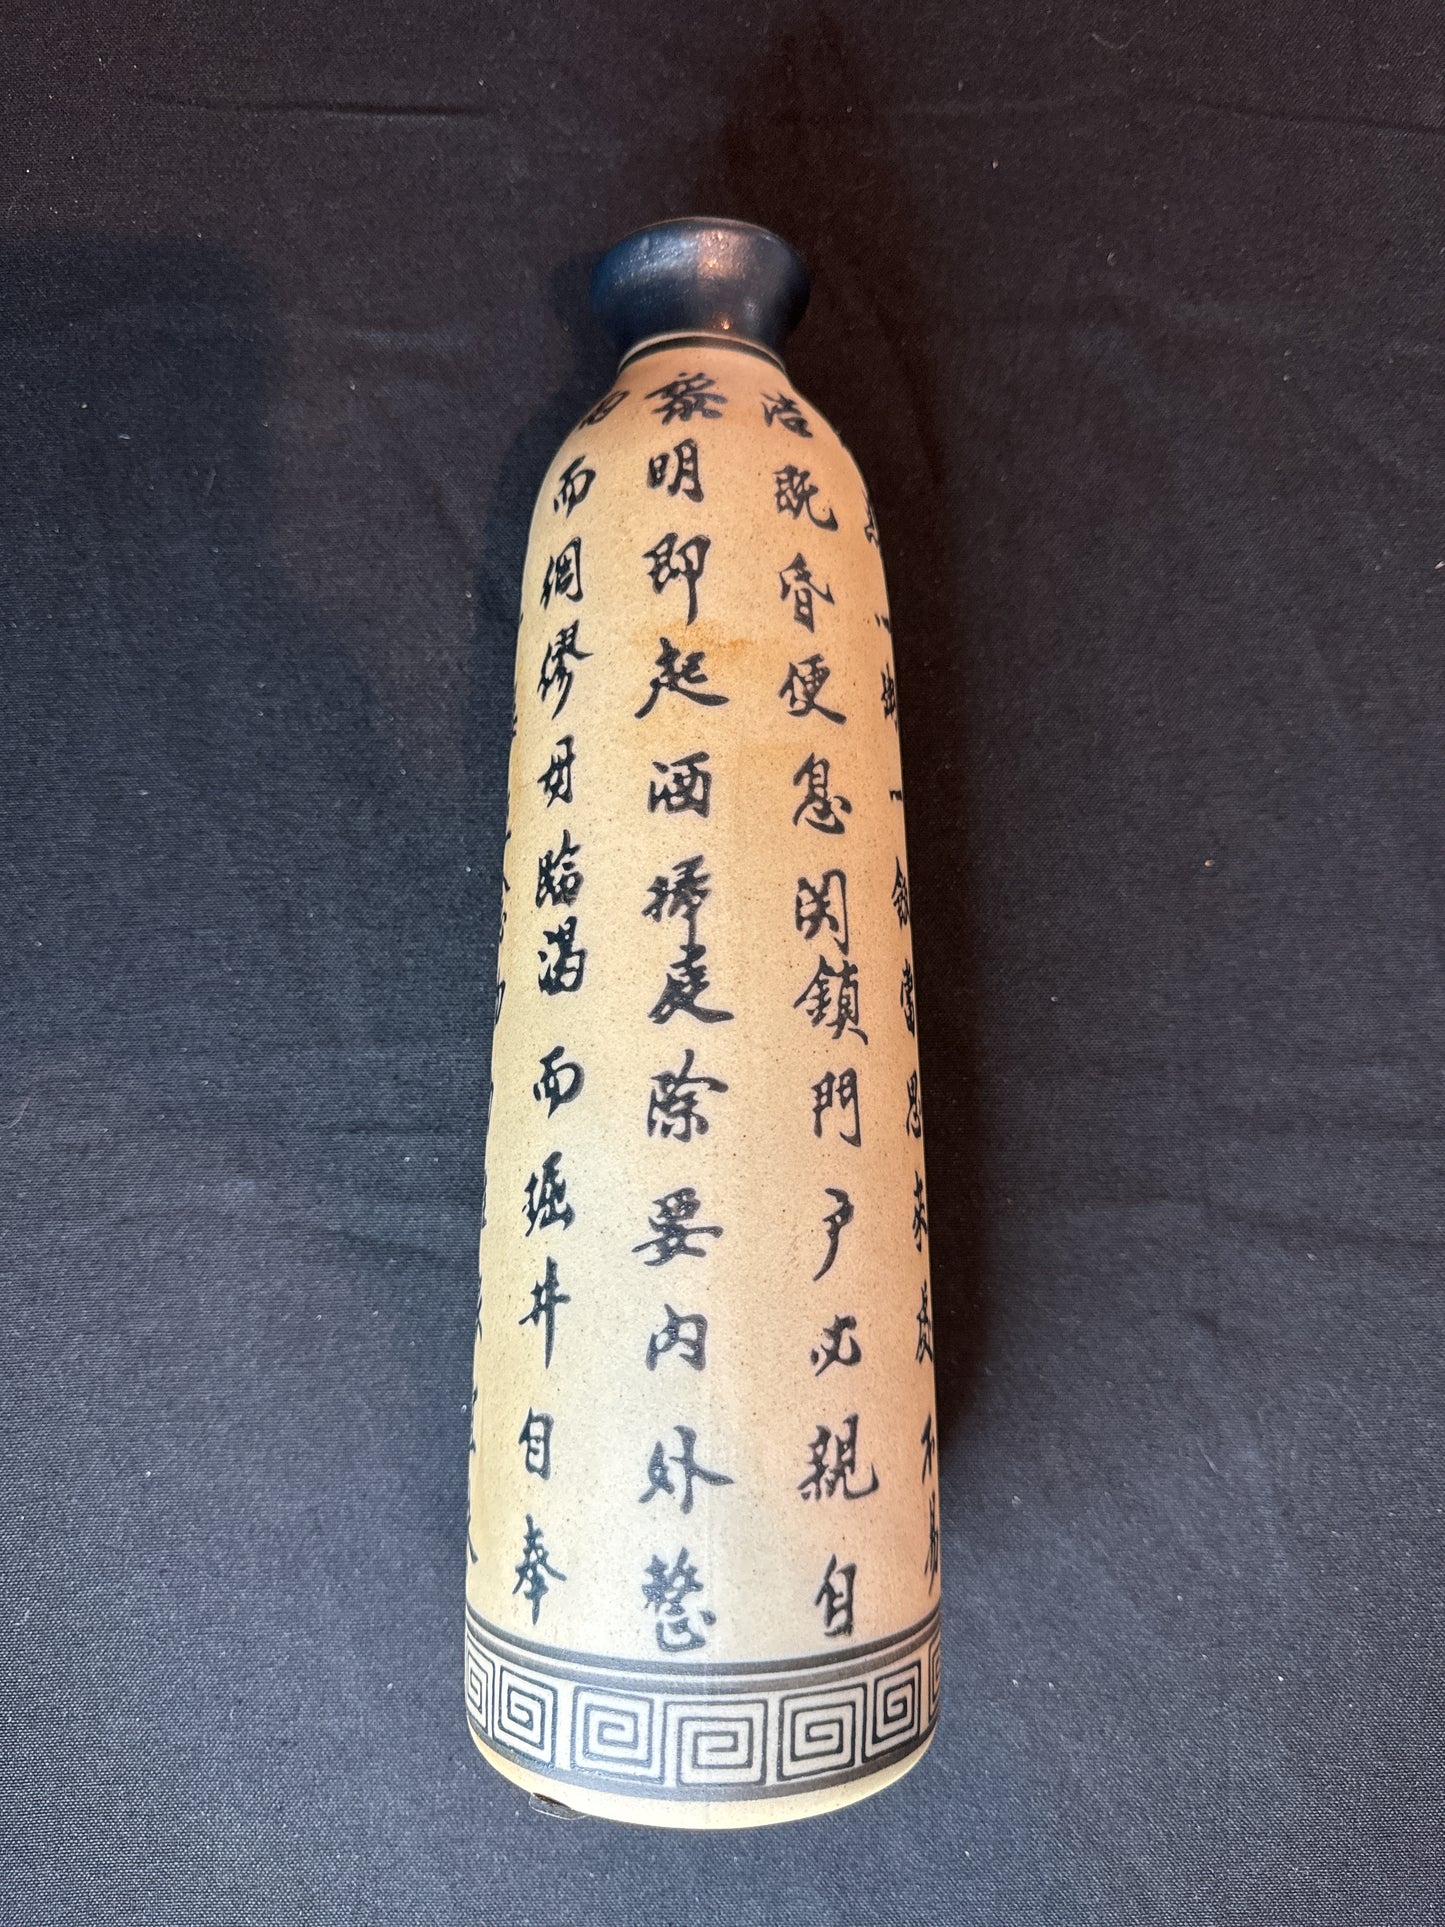 而綢繆毋臨渴而掘井自奉
黎明即起洒掃庭除要内外整
洁既昏便息関鎖門户必親自
一粥一飯當思来處不易